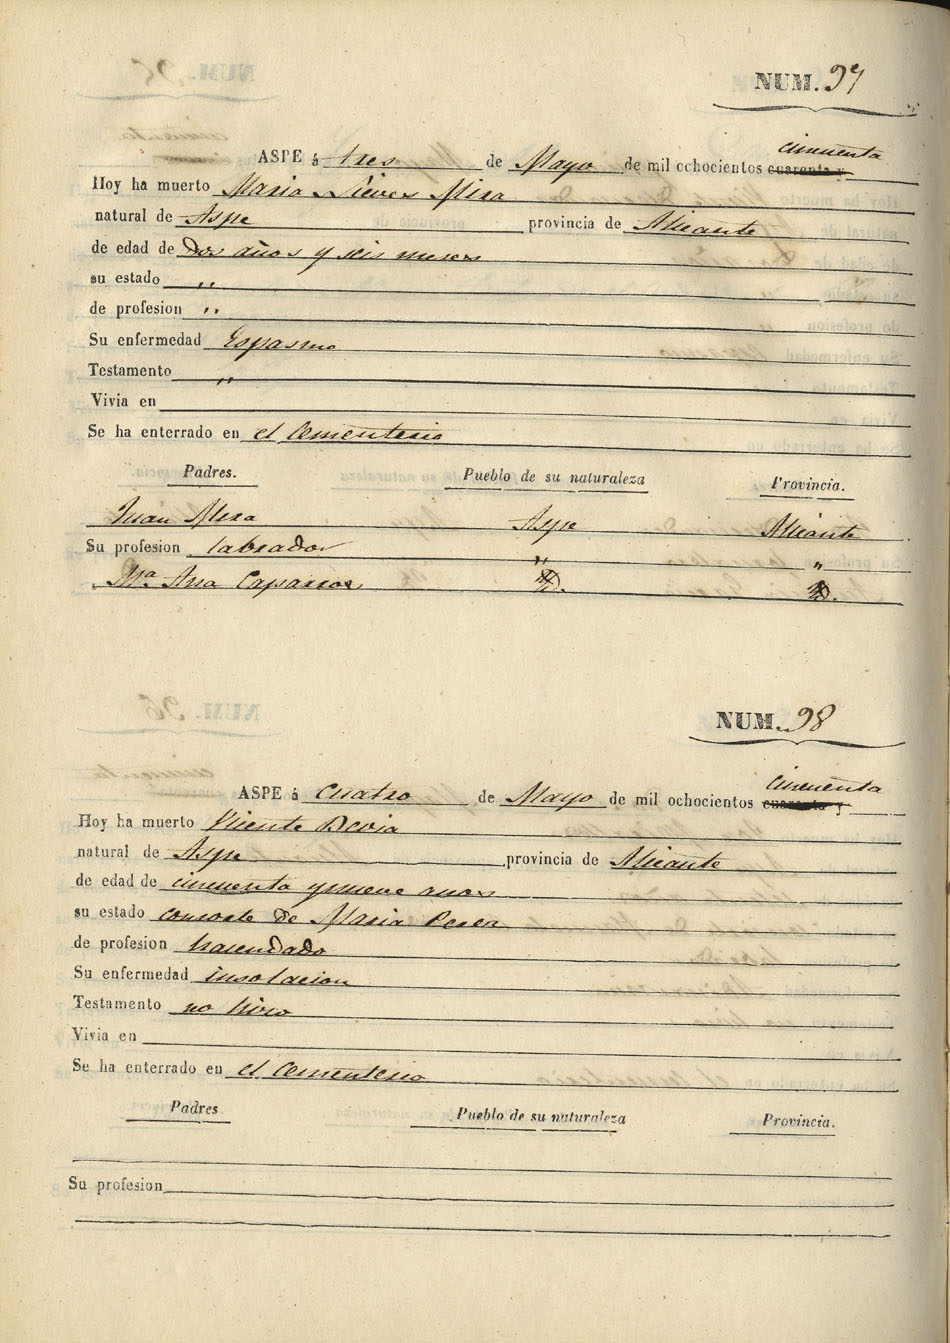 NUM. 97
cincuenta
ASPE á tres de Mayo de mil ochocientos cuarenta y
Hoy ha muerto Maria Nieves Mira
natural de Aspe provincia de Alicante
de edad de dos años y seis meses
su estado "
de profesion "
Su enfermedad Espasmo
Testamento "
Vivia en
Se ha enterrado en el Cementerio
Padres. Pueblo de su naturaleza Provincia.
Juan Mira Aspe Alicante
Su profesion labrador " "
Mª Ana Caparros D. D.
NUM. 98
cincuenta
ASPE á cuatro de Mayo de mil ochocientos cuarenta y
Hoy ha muerto Vicente
natural de Aspe provincia de Alicante
de edad de cincuenta y nueve años
su estado consorte de Maria Perez
de profesion hacendado
Su enfermedad insolacion
Testamento no hizo
Vivia en
Se ha enterrado en el Cementerio
Padres. Pueblo de su naturaleza Provincia.
Su profesion